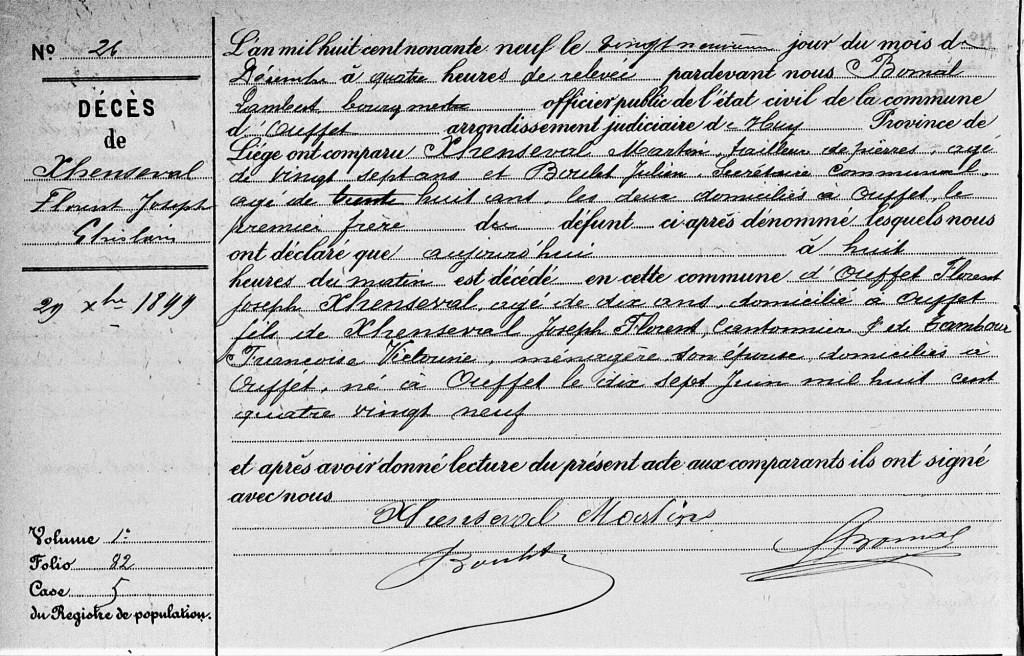 Nº 26
DÉCÈS
de
Xhenseval
Florent Joseph
Ghislain
29 Xbre 1899
Volume 1º
Folio 82
Case 5
du Registre de population.
L'an mil huit cent nonante neuf le vingt neuvième jour du mois de
Décembre à quatre heures de relevée pardevant nous Bomal
Lambert, bourgmestre officier public de l'état civil de la commune
d'Ouffet arrondissement judiciaire de Huy Province de
Liége ont comparu Xhenseval Martin, tailleur de pierres, agé
de vingt sept ans et Boulet Julien, Secrétaire Communal,
agé de trente huit ans, les deux domiciliés à Ouffet, le
premier frère du défunt ci-après dénommé lesquels nous
ont déclaré que aujourd'hui à huit
heures du matin est décédé en cette commune d'Ouffet Florent
Joseph Xhenseval, agé de dix ans, domicilié à Ouffet
fils de Xhenseval Joseph Florent, Cantonnier & de Tambour
Françoise Victorine, ménagère son épouse, domiciliés à
Ouffet, né à Ouffet le dix sept Juin mil huit cent
quatre vingt neuf
et après avoir donné lecture du présent acte aux comparants ils ont signé
avec nous
Xhenseval Martin
Boulet
LBomal